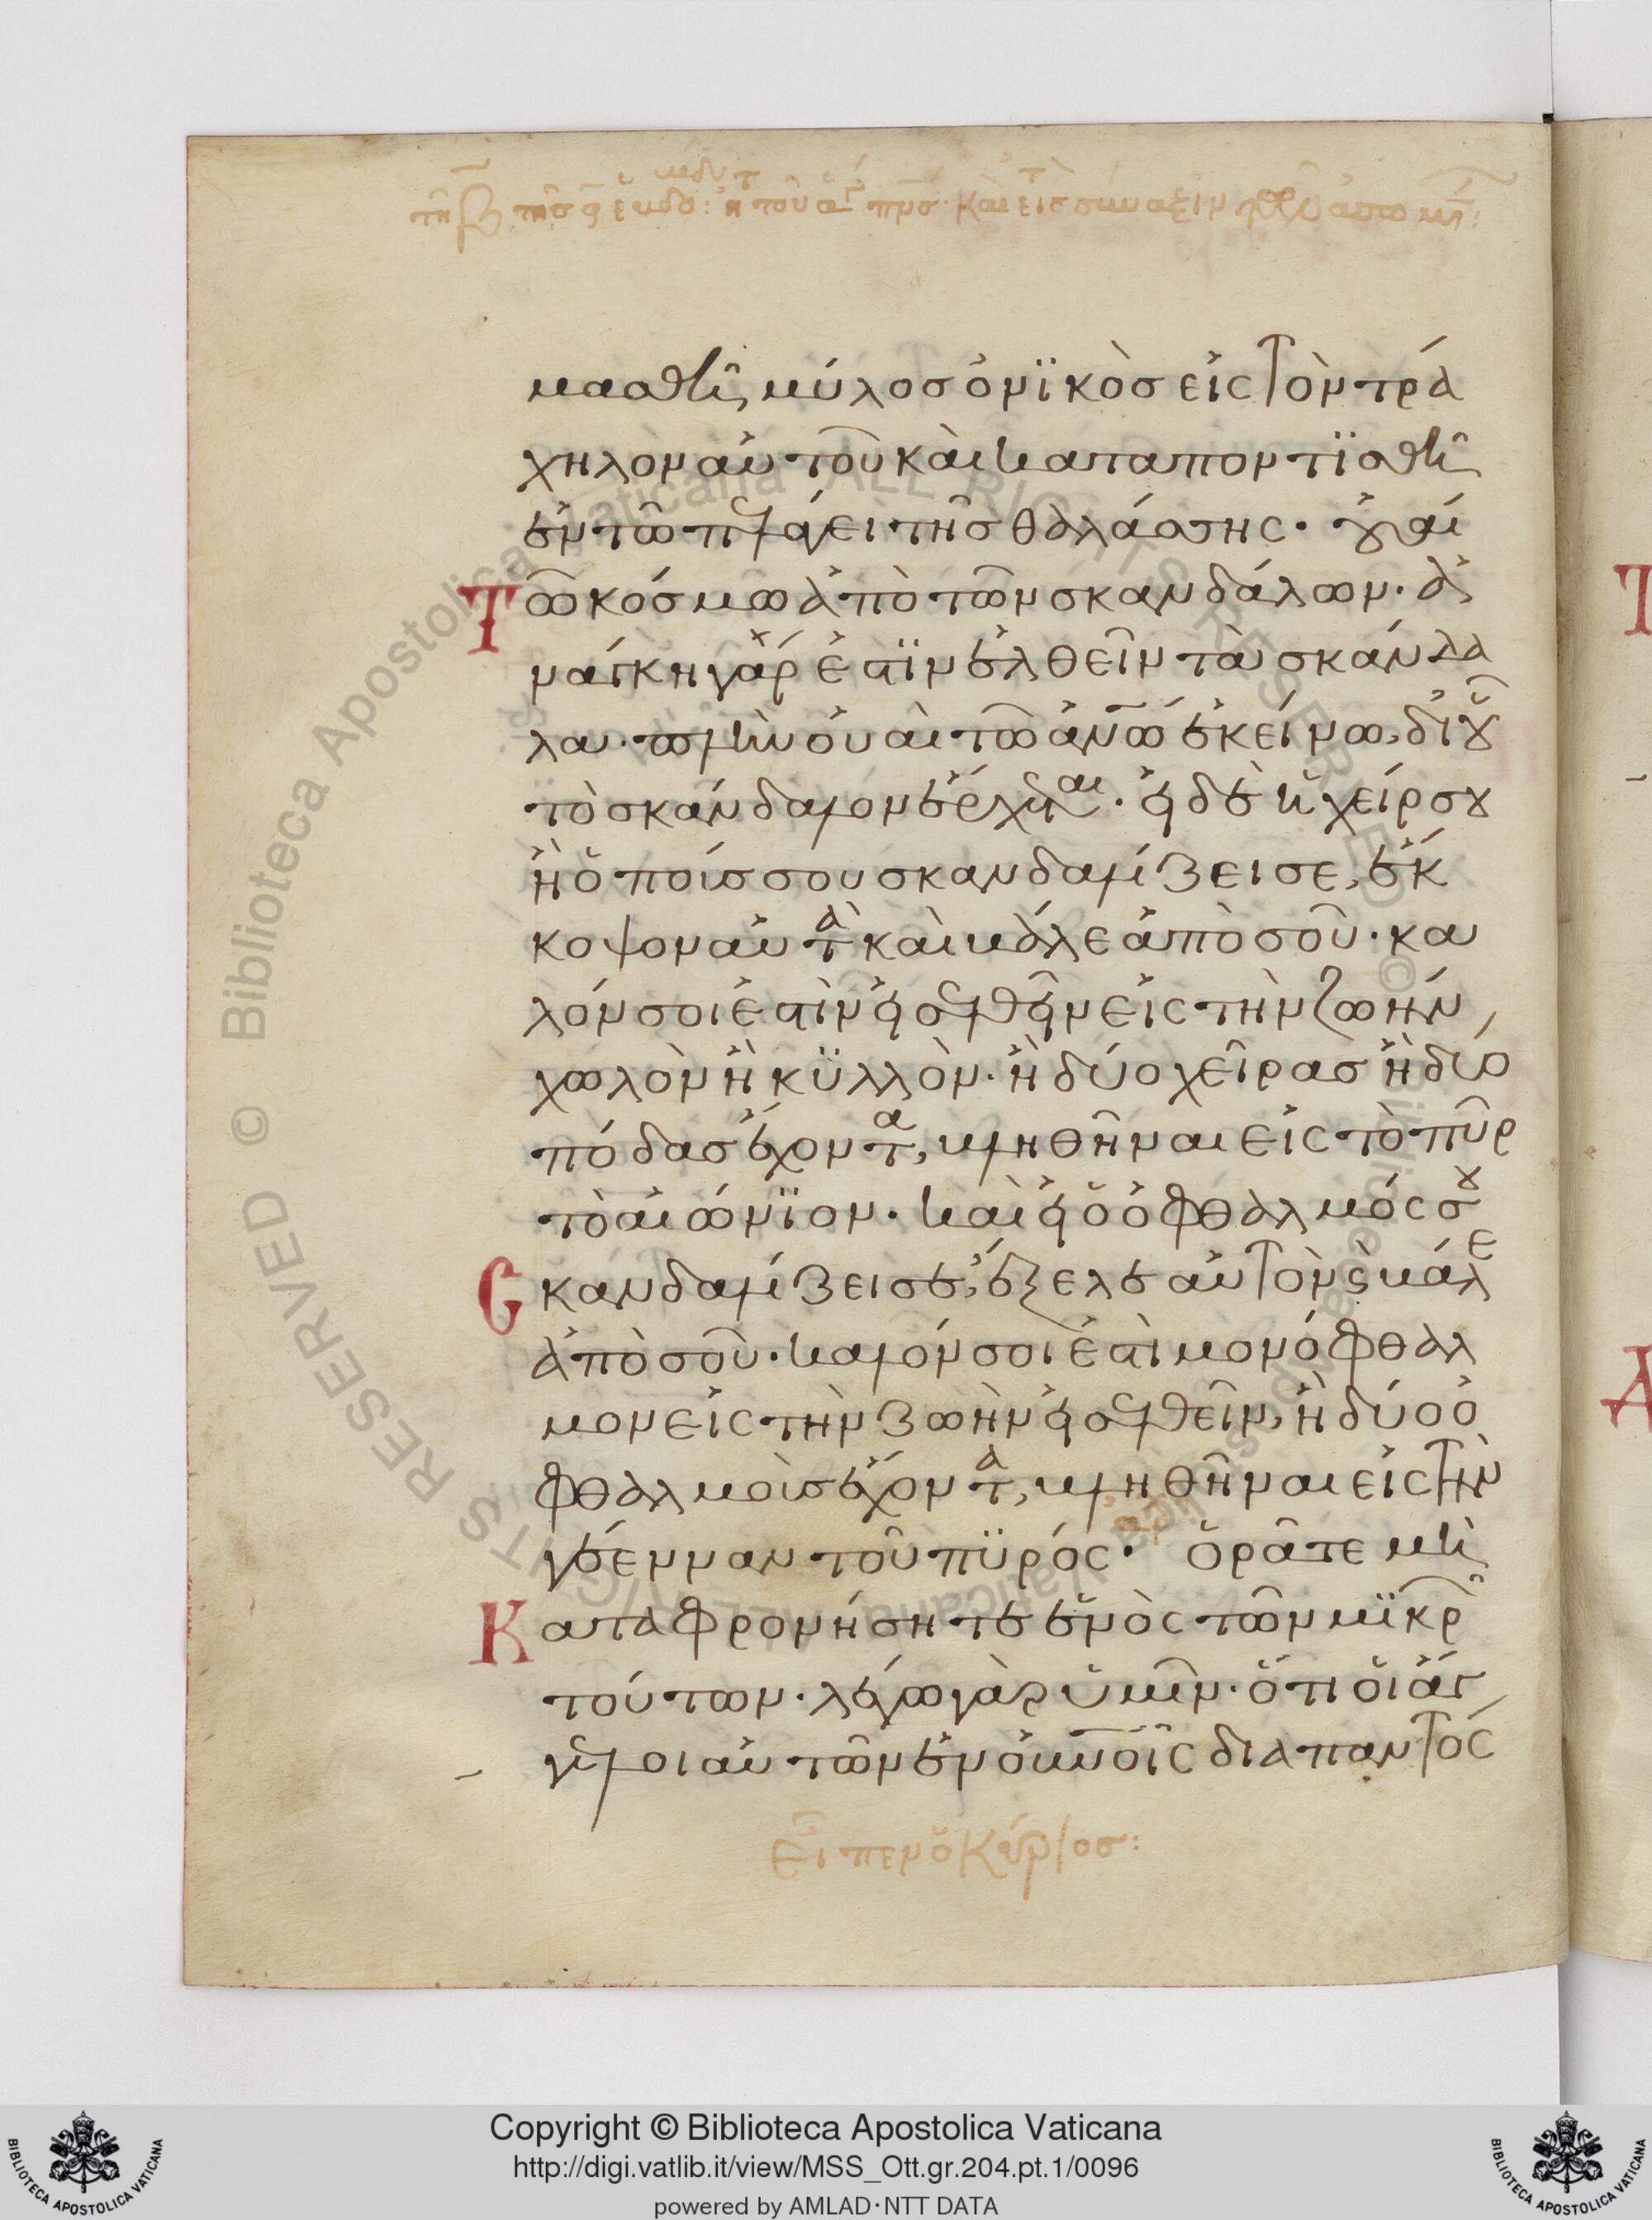 μασθῆ μύλος ὀνϊκὸς εἰς τὸν τρά
χηλον αὐτοῦ καὶ καταποντϊσθῆ
ἐν τῶ πελάγει τῆς θαλάσσης · οὐαὶ
Τῶ κόσμω ἀπὸ τῶν σκανδάλων · ἀ
νάγκη γάρ ἐστϊν ἐλθεῖν τὰ σκάνδα
λα · πλὴν οὐαὶ τῶ ἀνω ἐκείνω, δι οὗ
τὸ σκάνδαλον ἔρχεται · εἰ δὲ ἡ χείρ σου
ἢ ὁ ποῦς σου σκανδαλίζει σε, ἔκ
κοψον αὐτὰ καὶ βάλε ἀπὸ σοῦ · κα
λόν σοι ἐστὶν εἰσελθεῖν εἰς τὴν ζωήν,
χωλὸν ἢ κϋλλὸν · ἢ δύο χεῖρας ἢ δύο
πόδας ἔχοντα, βληθῆναι εἰς τὸ πῦρ
τὸ αἰώνϊον · καὶ εἰ ὁ ὀφθαλμός σου
Σκανδαλίζει σε, ἔξελε αὐτὸν ϗ βάλε
ἀπὸ σοῦ · καλόν σοι ἐστὶ μονόφθαλ
μον εἰς τὴν ζωὴν εἰσελθεῖν, ἢ δύο ὀ
φθαλμοὺς ἔχοντα, βληθῆναι εἰς τὴν
γέενναν τοῦ πϋρός · ὁρᾶτε μὴ
Καταφρονήσητε ἑνὸς τῶν μϊκρ
τούτων · λέγω γὰρ ὑμῖν · ὅτι οἱ ἄγ
γελοι αὐτῶν ἐν οὐνοῖς διαπαντός
Εἶπεν ὁ Κύριος :
Copyright © Biblioteca Apostolica Vaticana
http://digi.vatlib.it/view/MSS_Ott.gr.204.pt.1/0096
powered by AMLAD·NTT DATA